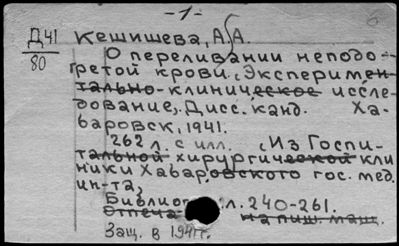 -1-
Д41
80
Кешишева, А. А.
О переливании неподо-
гретой крови. (Эксперимен-
тально-клиническое иссле-
дование). Дисс. канд. Ха-
баровск, 1941.
262 л. с илл. (Из Госпи-
тальной хирургической кли
ники Хабаровского гос. мед.
ин-та)
Библиогр. л. 240-261.
Отпеча на пиш. маш.
Защ. в 1941 г.